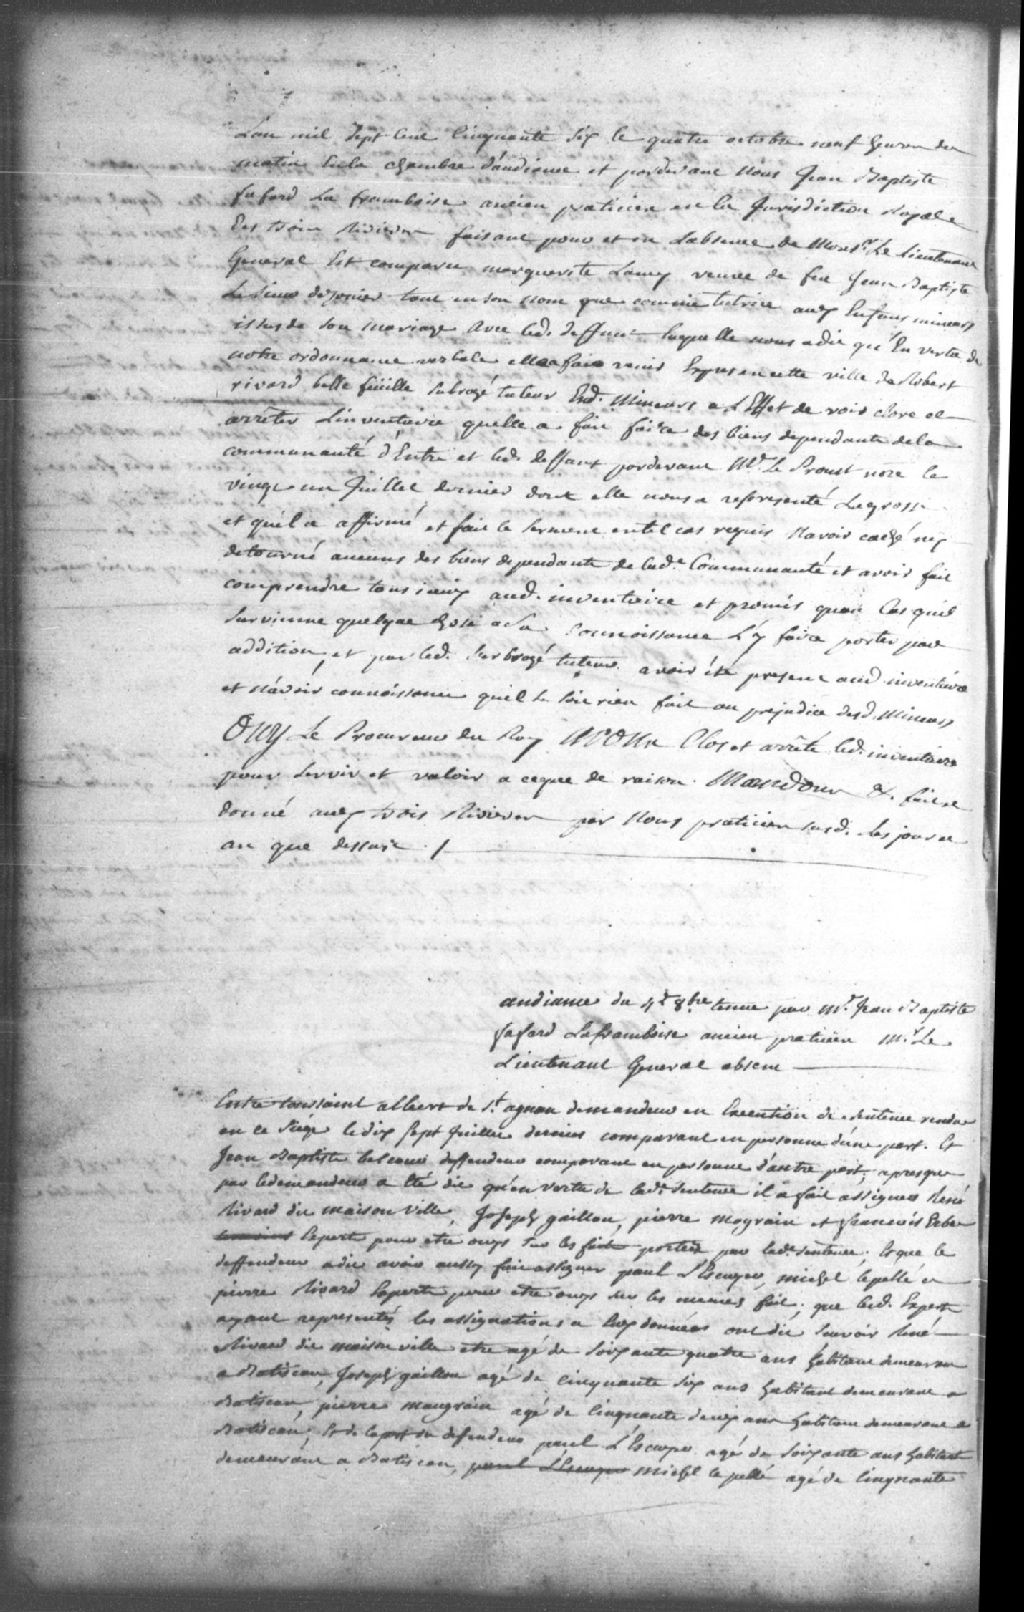 Lan mil Sept Cent Cinquante Six le quatre octobre neuf heures du
matin En la chambre d'audience et pardevant Nous Jean Baptiste
fafard La framboise ancien praticien en la Jurisdiction Royale
Des trois Rivieres faisant pour et en L'absence de Monsr. Le Lieutenant
General Est comparu marguerite Lamy veuve de feu Jean Baptiste
tant en son nom que comme tutrice aux Enfans mineurs
issus de son mariage Avec led. deffunt laquelle nous a dit qu'En vertu de
notre ordonnance verbale elle a fait venir Expres en cette ville de Robert
rivard belle feüille subrogé tuteur Esd. Mineurs a L'Effet de voir clore et
arrêter L'inventaire quelle a fait faire des biens dependants de la
communauté d'Entre et led. deffunt pardevant Mr. Le Proust nore le
vingt un Juillet dernier dont elle nous a representé La grosse
et qu'el a affirmé et fait le serment en tel cas requis N'avoir caché ny
detourné aucuns des biens dependants de lad.e Communauté et avoir fait
comprendre tous iceux aud. inventaire et promis qu'au Cas quil
survienne quelque chose a sa Connoissance L'y faire porter par
addition, et par led. Subrogé tuteur avoir été present aud. inventaire
et n'avoir connoissance quil se soit rien fait au prejudice desd. Mineurs
Ouy Le Procureur du Roy avons Clos et arrêté led. inventaire
pour servir et valoir a ceque de raison. Mandons &. fait et
donné aux trois Rivieres par Nous praticien susd. les jour et
an que dessus. /
audiance du 4e 8bre tenue par Mr. Jean Baptiste
fafard Laframboise ancien praticien Mr. Le
Lieutenant General absent
Entre toussaint allbert de St. agnan demandeur en Execution de sentence rendue
en ce Siege le dix Sept Juillet dernier comparant en personne d'une part. Et
Jean Baptiste deffendeur comparant en personne d'autre part, apresque
par ledemandeur a Eté dit qu'en vertu de lad.e sentence il a fait assigner René
Rivard dit maison ville, Joseph gaillou, pierre mograin et francois
temoins Experts pour etre ouys sur les faits portés par lad.e sentence; Et que le
deffendeur a dit avoir aussy fait assigner paul L'Escuyer, michel lepellé et
pierre Rivard Experts pour etre ouys sur les memes faits; que lesd. Experts
ayant representés les assignations a Eux données ont dit Scavoir René
Rivard dit maison ville etre agé de soixante quatre ans habitant demeurant
a Batiscan, Joseph gaillou agé de cinquante six ans habitant demeurant a
Batiscan, pierre maugrain agé de Cinquante deux ans habitant demeurant a
Batiscan; Et de la part du deffendeur paul L'Escuyer agé de soixante ans habitant
demeurant a Batiscan, paul L'Escuyer Michel le pellé agé de Cinquante